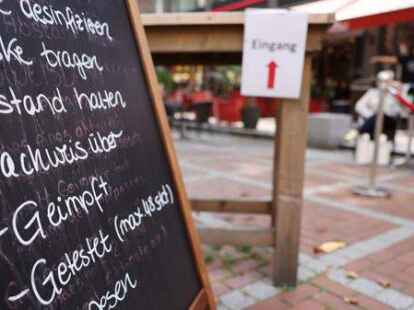 desinfizieren
ske tragen
stand halten
achweis über
- Geimpft
- Getestet (max 48 std)
esen
Eingang